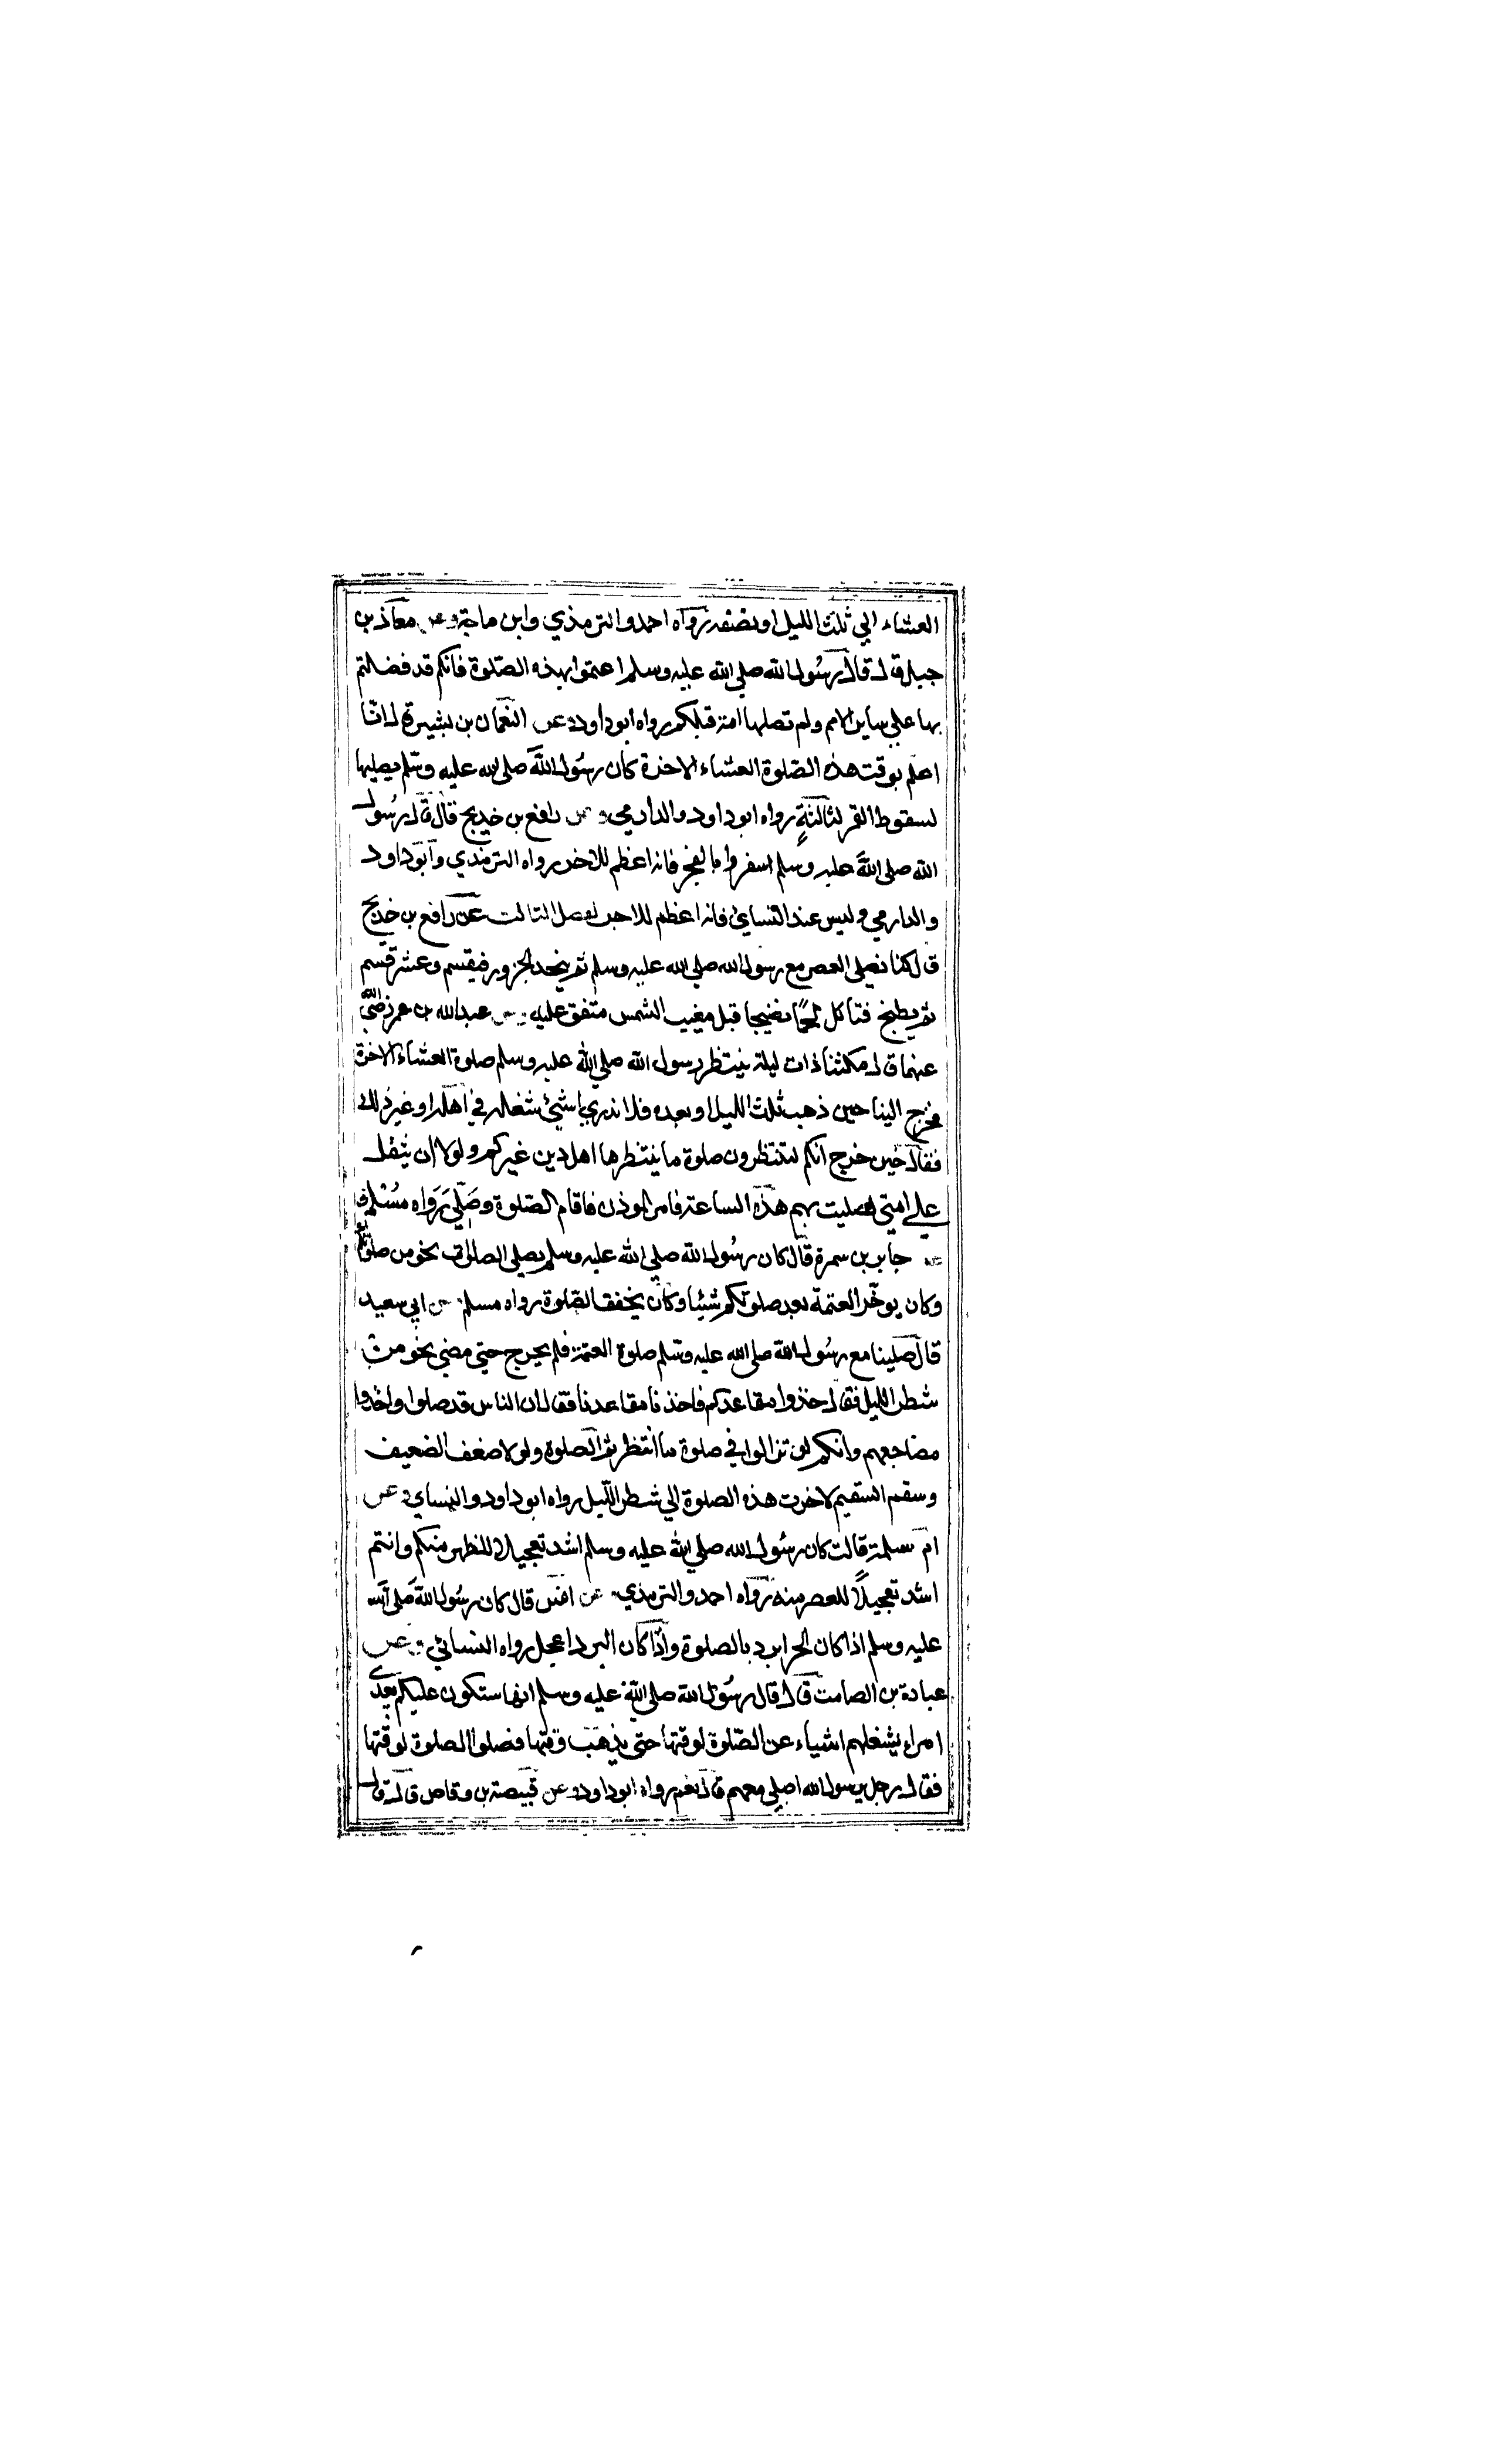 العشاء الي ثلث الليل او نصفه رواه احمد والترمذي وابن ماجة وعن معاذ بن
جبل قال قال رسول الله صلي الله عليه وسلم اعتموا بهذه الصلوة فانكم قد فضلتم
بها علي ساير الامم ولم تصلها امة قبلكم رواه ابو داود وعن النعمان بن بشير قال انا
اعلم بوقت هذه الصلوة العشاء الاخرة كان رسول الله صلي الله عليه وسلم يصليها
لسقوط القمر لثالثة رواه ابو داود والدارمي وعن رافع بن خديج قال قال رسول
الله صلي الله عليه وسلم اسفروا بالفجر فانه اعظم للاجر رواه الترمذي وابو داود
والدارمي وليس عند النسائي فانه اعظم للاجر لفصل الثالث عن رافع بن خديج
قال كنا نصلي العصر مع رسول الله صلي الله عليه وسلم ثم ينحر الجزور فيقسم وعشر قسم
ثم يطبخ فتاكل لحما نضيجا قبل مغيب الشمس متفق عليه وعن عبدالله بن عمر رضي الله
عنهما قال مكثنا ذات ليلة ينتظر رسول الله صلي الله عليه وسلم صلوة العشاء الاخرة
فخرج الينا حين ذهب ثلث الليل او بعده فلا ندري اشيئ شغله في اهله او غير ذلك
فقال حين خرج انكم لتنتظرون صلوة ما ينتظرها اهل دين غيركم ولولا ان يثقل
علي امتي لصليت بهم هذه الساعة فامر الموذن فاقام الصلوة وصلي رواه مسلم
وعن جابر بن سمرة قال كان رسول الله صلي الله عليه وسلم يصلي الصلوات نحو من صلوتكم
وكان يوخر العتمة بعد صلوتكم شيئا وكان يخفف الصلوة رواه مسلم وعن ابي سعيد
قال صلينا مع رسول الله صلي الله عليه وسلم صلوة العتمة فلم يخرج حتي مضي نحو من
شطر الليل فقال خذوا مقاعدكم فاخذنا مقاعدنا فقال ان الناس قد صلوا واخذوا
مضاجعهم وانكم لن تزالوا في صلوة ما انتظرتم الصلوة ولولا ضعف الضعيف
وسقم السقيم لاخرت هذه الصلوة الي شطر الليل رواه ابو داود والنسائي وعن
ام سلمة قالت كان رسول الله صلي الله عليه وسلم اشد تعجيلا للظهر منكم وانتم
اشد تعجيلا للعصر منه رواه احمد والترمذي وعن انس قال كان رسول الله صلي الله
عليه وسلم اذا كان الحر ابرد بالصلوة واذا كان البرد اعجل رواه النسائي وعن
عبادة بن الصامت قال قال رسول الله صلي الله عليه وسلم انها ستكون عليكم بعدي
امراء يشغلهم اشياء عن الصلوة لوقتها حتي يذهب وقتها فصلوا الصلوة لوقتها
فقال رجل يرسول الله اصلي معهم قال نعم رواه ابو داود وعن قبيصة بن وقاص قال قال